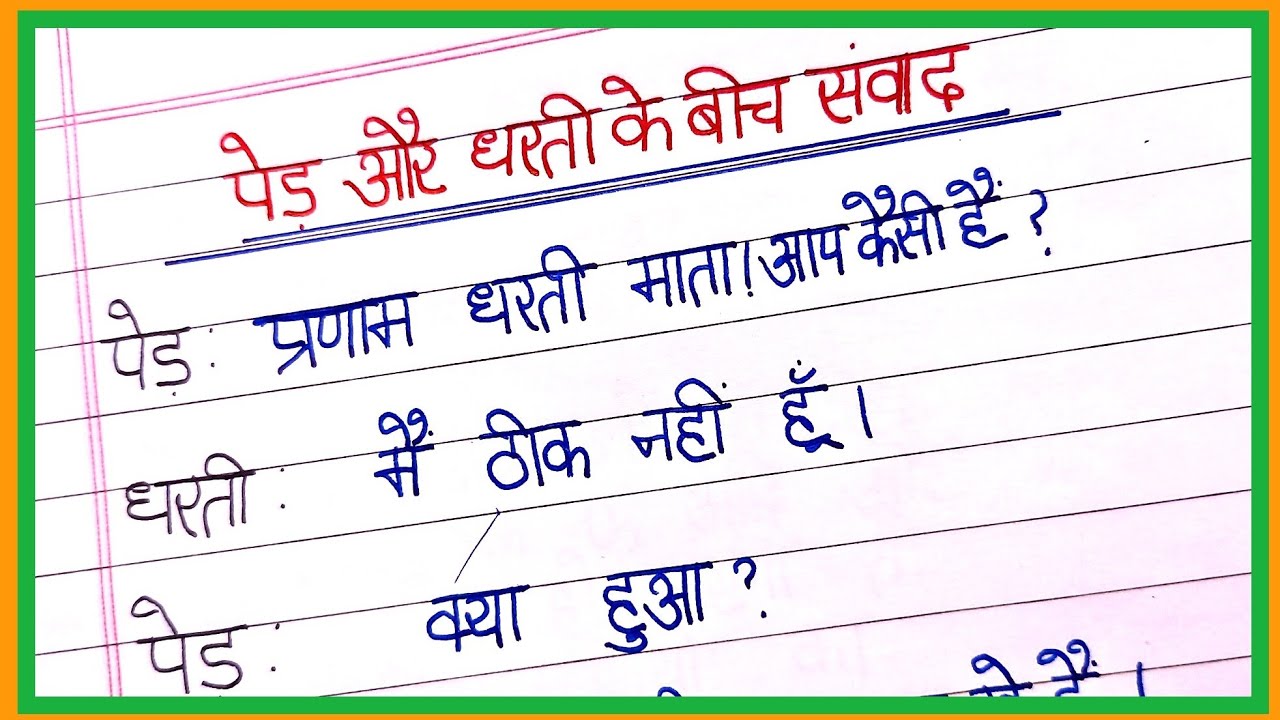 पेड़ और धरती के बीच संवाद
पेड़: प्रणाम धरती माता! आप कैसी हैं?
धरती: मैं ठीक नहीं हूँ।
पेड: क्या हुआ?
हैं।